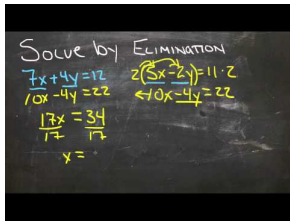 Solve by Elimination
7x+4y=12
10x-4y=22
17x=34
17 17
x=
2(5x-2y)=11·2
←10x-4y=22